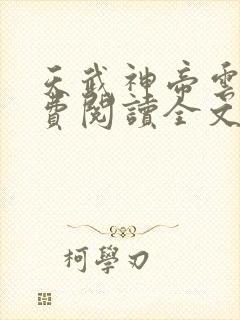 天武神帝雲
費閱讀全文
柯學刃